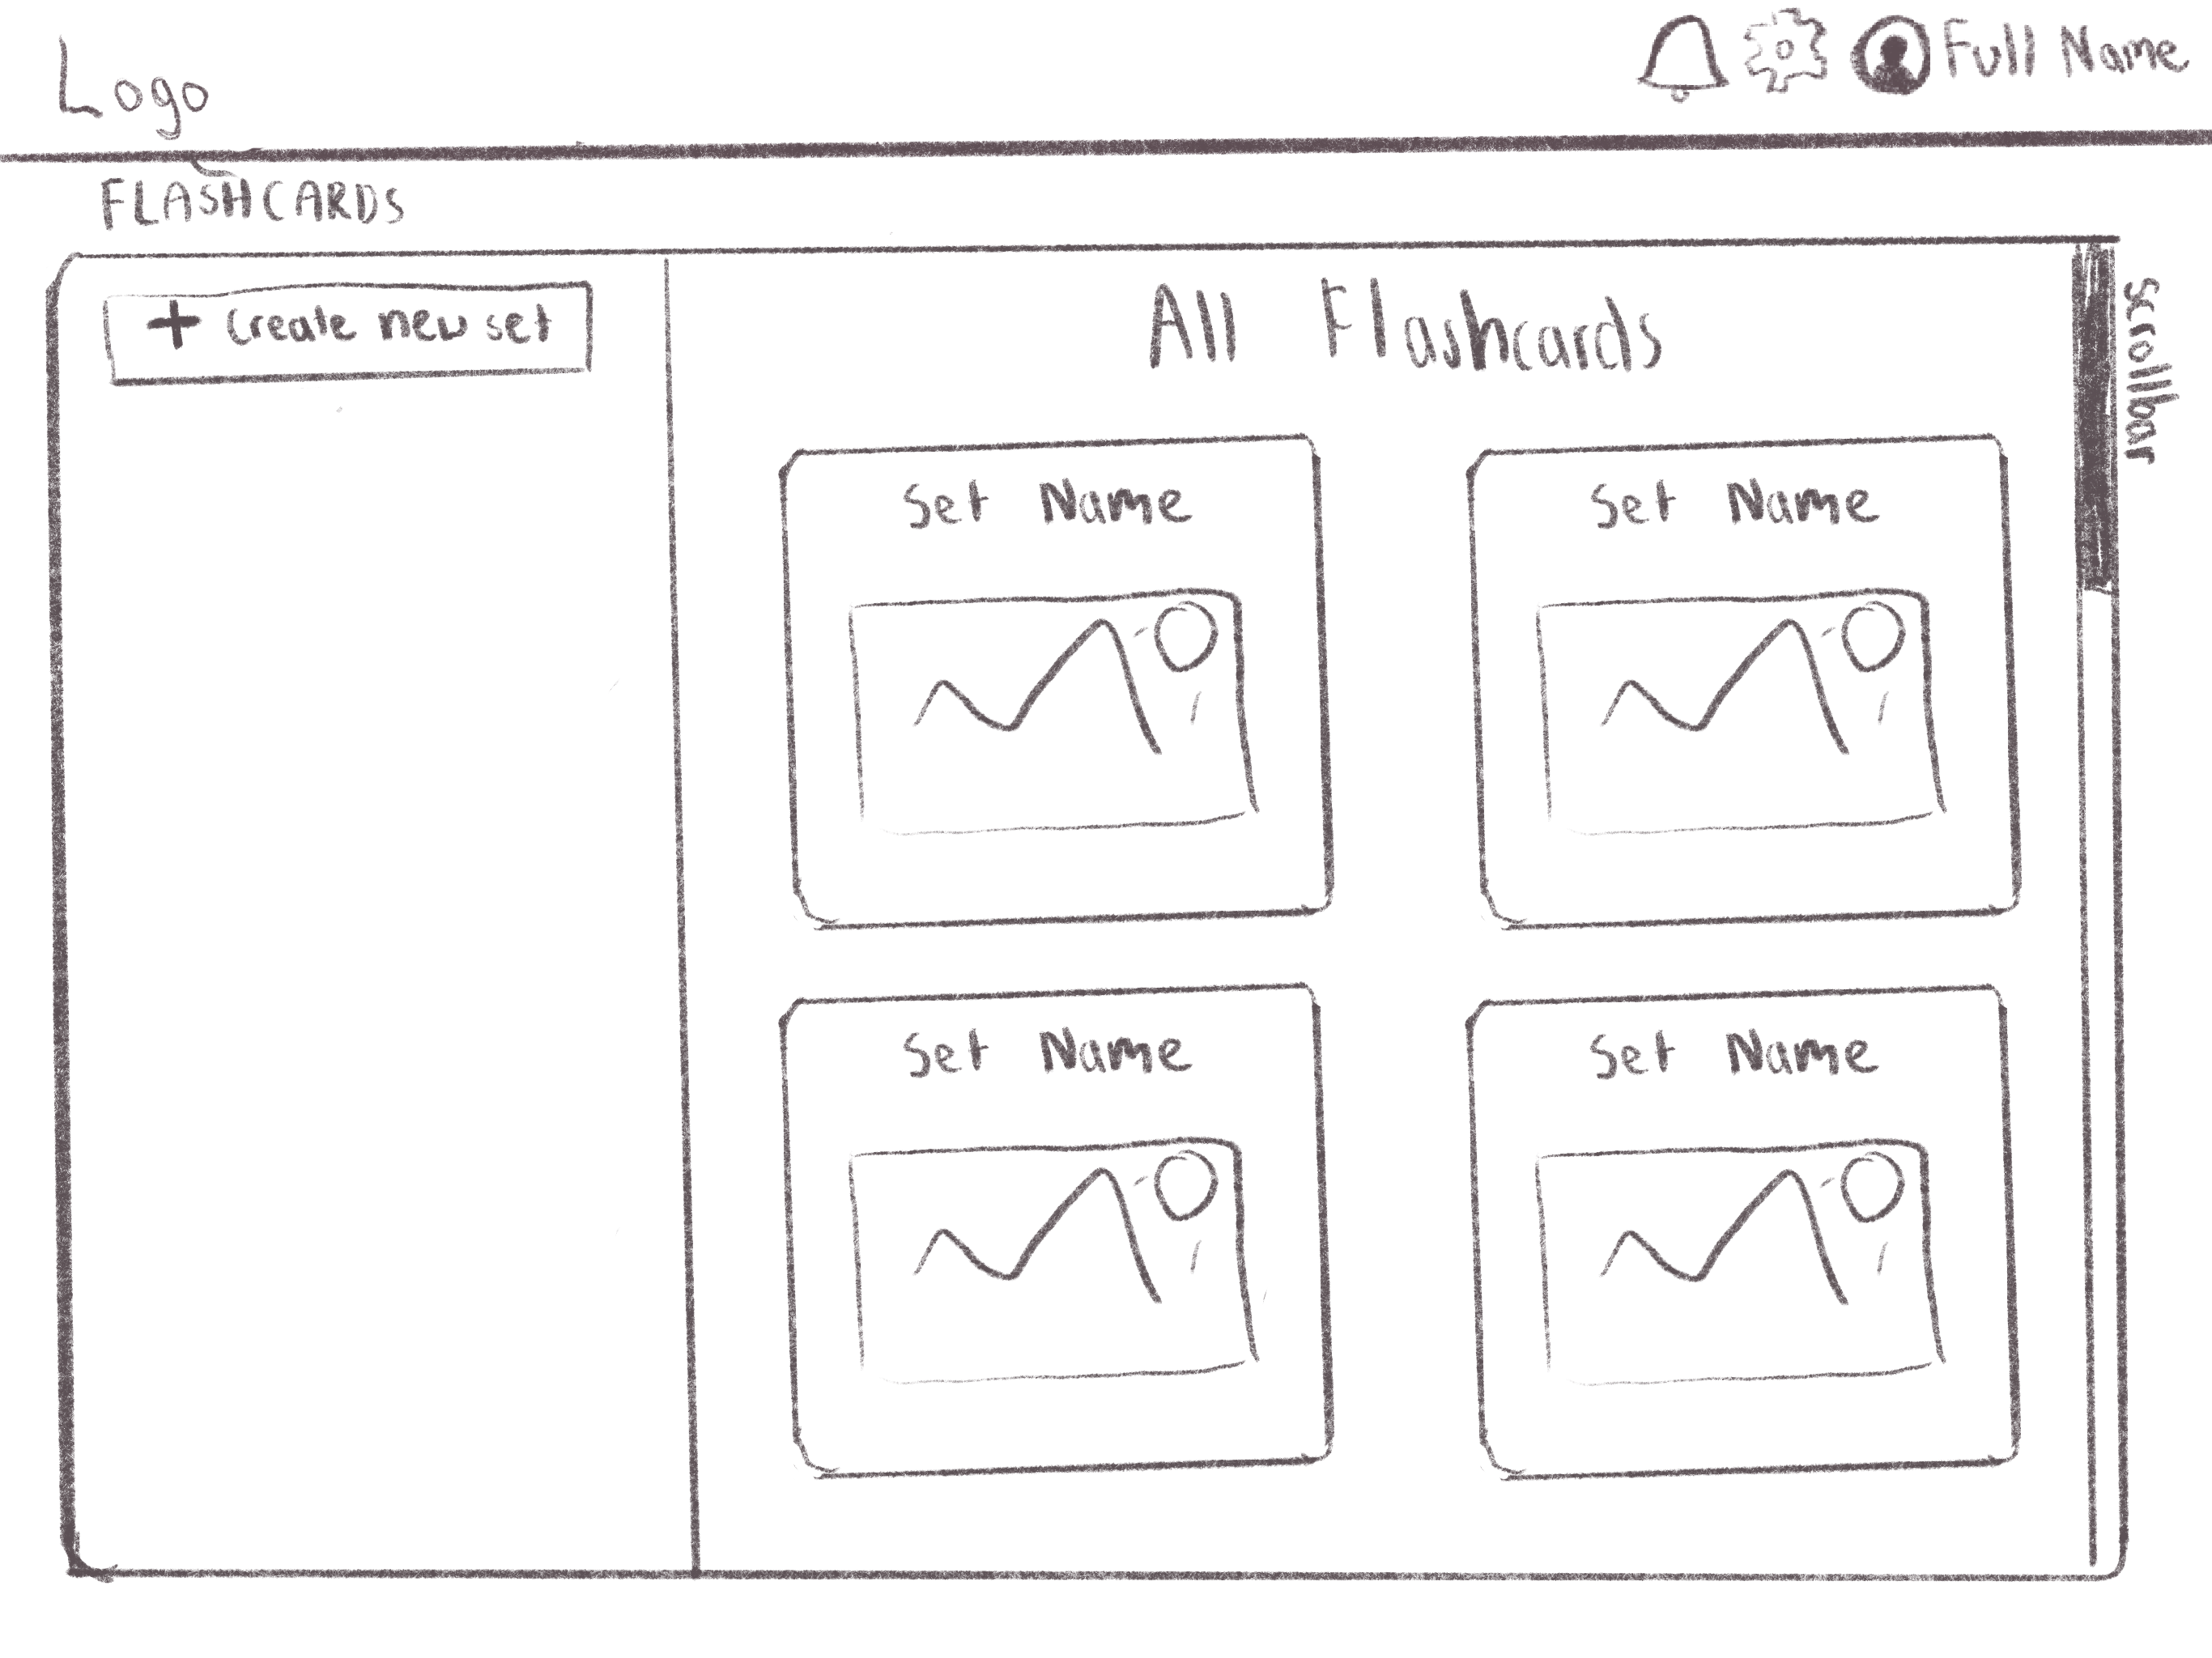 Logo
Full Name
FLASHCARDS
+ Create new set
All Flashcards
Scrollbar
Set Name
Set Name
Set Name
Set Name